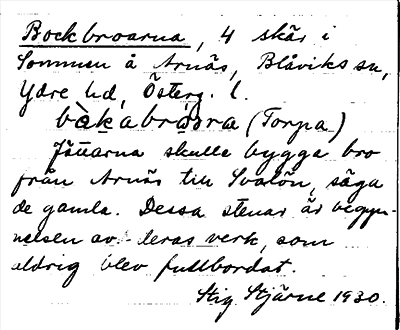 Bockbroarna, 4 skär i
Sommen å Arnäs, Blåviks sn,
Ydre hd, Österg. l.
bòkabrωɔra (Torpa)
Jättarna skulle bygga bro
från Arnäs till Svalön, säga
de gamla. Dessa stenar är begyn-
nelsen av deras verk, som
aldrig blev fullbordat.
Stig Stjärne 1930.